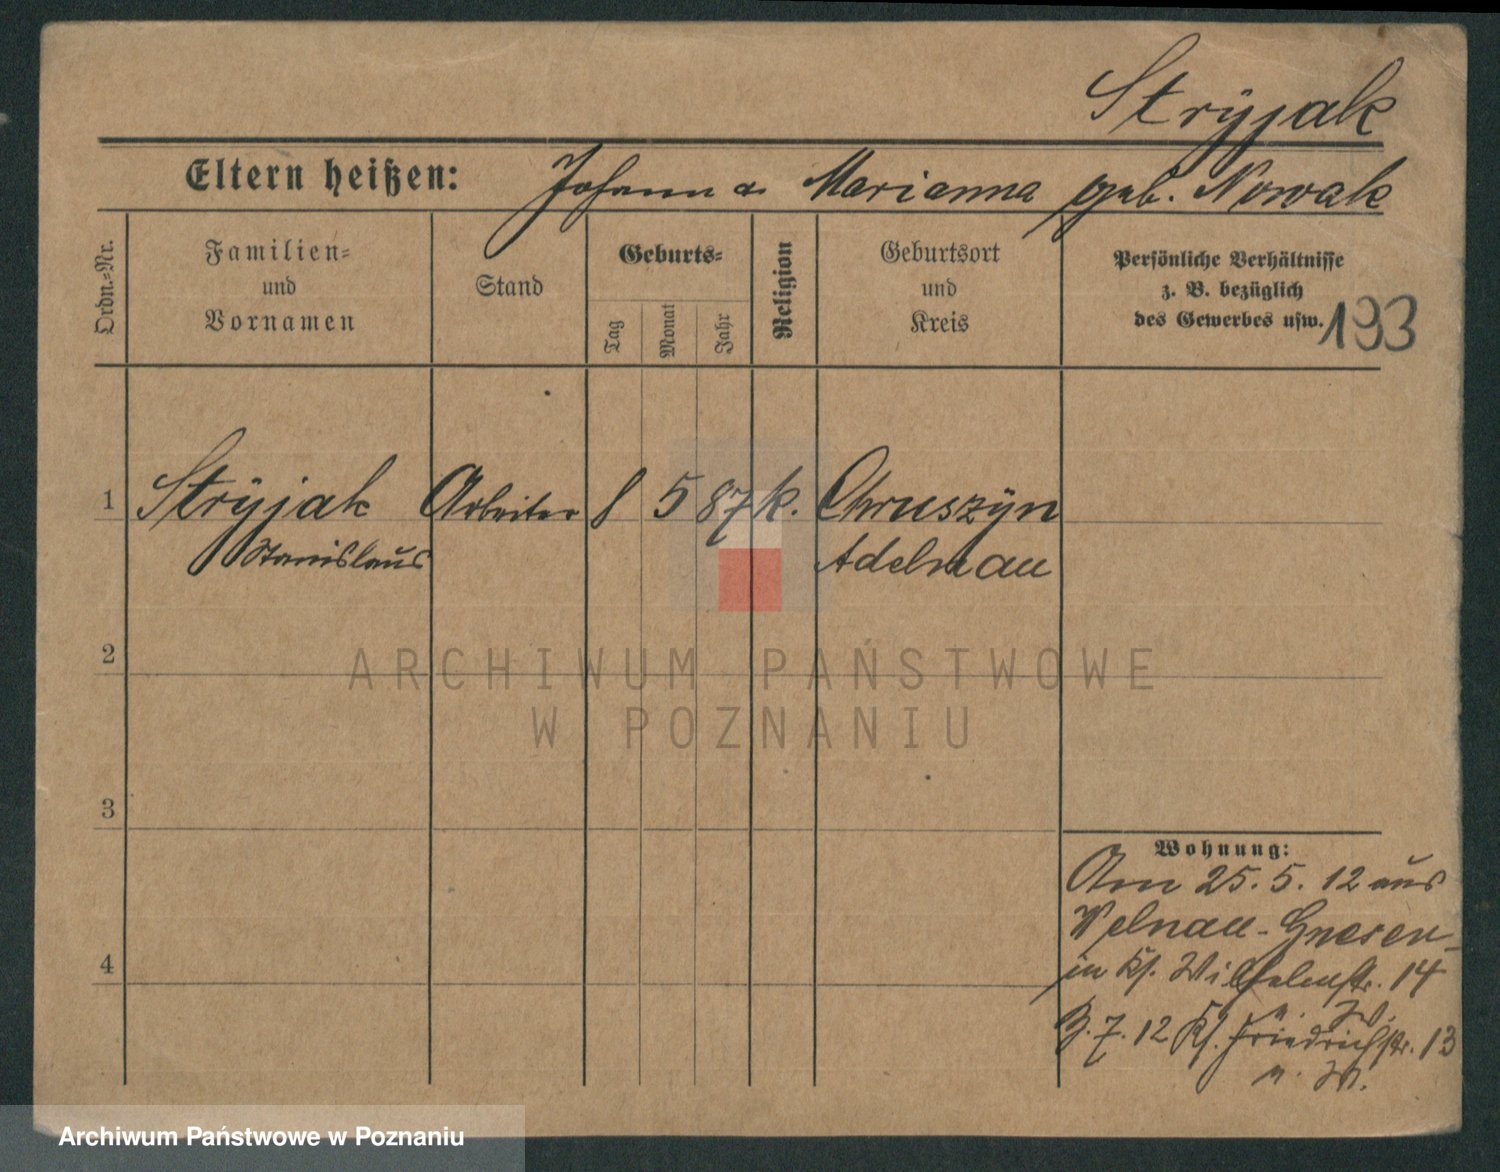 Stryjak
Eltern heißen: Johann u. Marianna geb. Nowak
Ordn.-Nr.
Familien-
und
Vornamen
Stand
Geburts-
Tag
Monat
Jahr
Religion
Geburtsort
und
Kreis
Persönliche Verhältnisse
z. B. bezüglich
des Gewerbes usw.
193
1 Stryjak Arbeiter 8 5 87 k. Chruszÿn
Stanislaus Adelnau
2
ARCHIWUM PAŃSTWOWE
W POZNANIU
3
Wohnung:
Am 25. 5. 12 aus
Welnau-Gnesen
in Wilhelmstr. 14
4
7. 12 Friedrichstr. 13
Archiwum Państwowe w Poznaniu